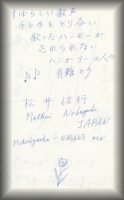 すばらしい歌声
手を手をとり合い
歌ったハーモニーが
忘れられない
ハンガリーの人々
有難う
松井信行
JAPAN
NAGANO KEN